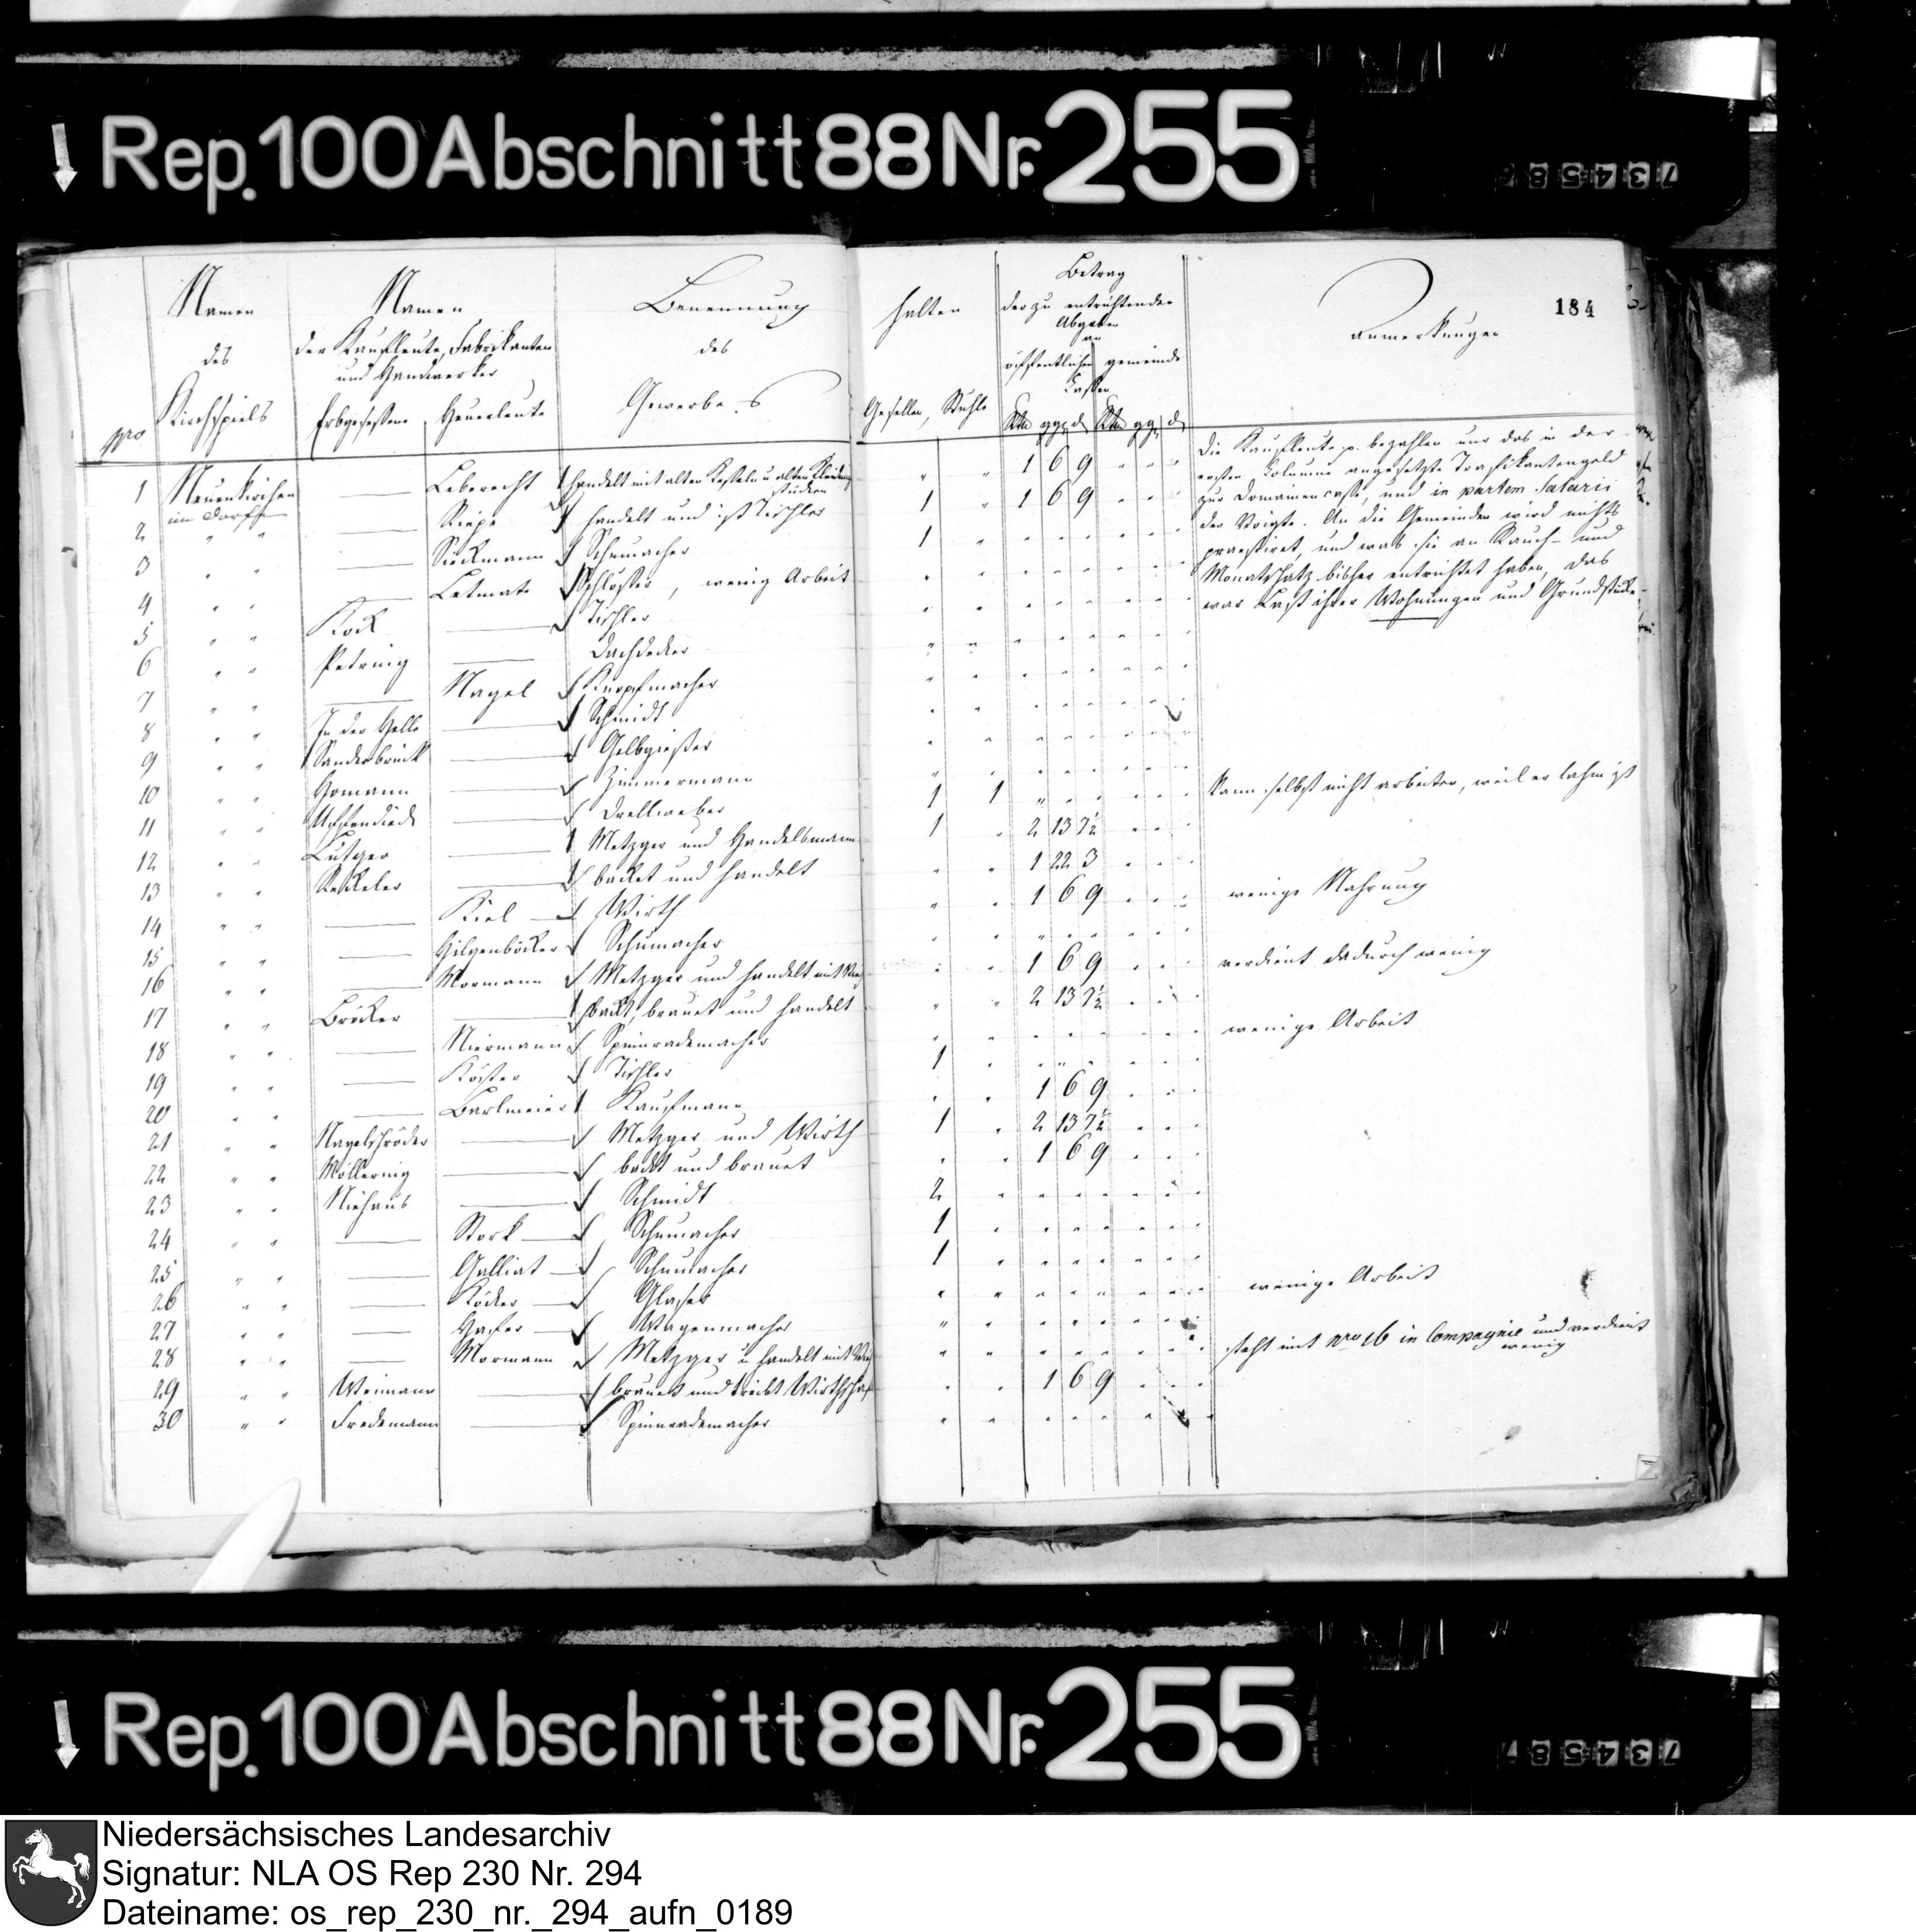 Rep. 100 Abschnitt 88 Nr. 255
734586
184
Namen des Kirchspiels
Namen der Kaufleute, Fabrikanten und Handwerker
Erbgesessene Heuerleute
Benennung des Gewerbes
halten
Gesellen, Stühle
Betrag der zu entrichtenden Abgaben an
öffentlichen gemeinde
Cassen
Rtlr ggr d Rtlr ggr d
Anmerkungen
nro
1 Neuenkirchen im Dorffe —— Leberecht handelt mit alten Kesseln u alten Kleidung " " 1 6 9 " " "
2 " " —— Riepe handelt und ist Tischler 1 " 1 6 9 " " "
3 " " —— Sieckmann Schumacher 1 " " " " " " "
4 " " —— Letmate Schlösser, wenig Arbeit " " " " " " " "
5 " " Kock —— Tischler " " " " " " " "
6 " " Petring —— Dachdecker " " " " " " " "
7 " " —— Nagel Knopfmacher " " " " " " " "
8 " " In der Helle —— Schmidt " " " " " " " "
9 " " Sanderbrink —— Gelbgießer " " " " " " " "
10 " " Homann —— Zimmermann " " " " " " " "
11 " " —— Drellweber 1 1 " " " " " "
12 " " Lutger —— Metzger und Handelsmann 1 " 2 13 7½ " " "
13 " " —— backet und handelt " " 1 22 3 " " "
14 " " —— Kiel Wirth " " 1 6 9 " " "
15 " " —— Hilgenböcker Schumacher " " " " " " " "
16 " " —— Mormann Metzger und handelt mit Vieh " " 1 6 9 " " "
17 " " Bröcker —— backt, brauet und handelt " " 2 13 7½ " " "
18 " " —— Niermann Spinnrademacher " " " " " " " "
19 " " —— Köster Tischler 1 " " " " " " "
20 " " —— Barlmeier Kaufmann " " 1 6 9 " " "
21 " " Nagelschröder —— Metzger und Wirth 1 " 2 13 7½ " " "
22 " " Möllering —— backt und brauet " " 1 6 9 " " "
23 " " Niehaus —— Schmidt 2 " " " " " " "
24 " " —— Stork Schumacher 1 " " " " " " "
25 " " —— Galliat Schumacher 1 " " " " " " "
26 " " —— Köcker Glaser " " " " " " " "
27 " " —— Wagenmacher " " " " " " " "
28 " " —— Mormann Metzger u handelt mit Vieh " " " " " " " "
29 " " Weimann —— brauet und treibt Wirthschaft " " 1 6 9 " " "
30 " " Fredemann —— Spinnrademacher " " " " " " " "
Die Kaufleute p. bezahlen nur das in der
ersten Columne angesetzte Trafikantengeld
zur Domainencasse, und in partem Salarii
der Voigte. An die Gemeinden wird nichts
praestiret, und was sie an Rauch- und
Monatschatz bisher entrichtet haben, das
war Last ihrer Wohnungen und Grundstücke
kann selbst nicht arbeiten, weil er lahm ist
wenige Nahrung
verdient dadurch wenig
wenige Arbeit
wenige Arbeit
steht mit Nro 16 in Compagnie und verdient
wenig
Rep. 100 Abschnitt 88 Nr. 255
734587
Niedersächsisches Landesarchiv
Signatur: NLA OS Rep 230 Nr. 294
Dateiname: os_rep_230_nr._294_aufn_0189